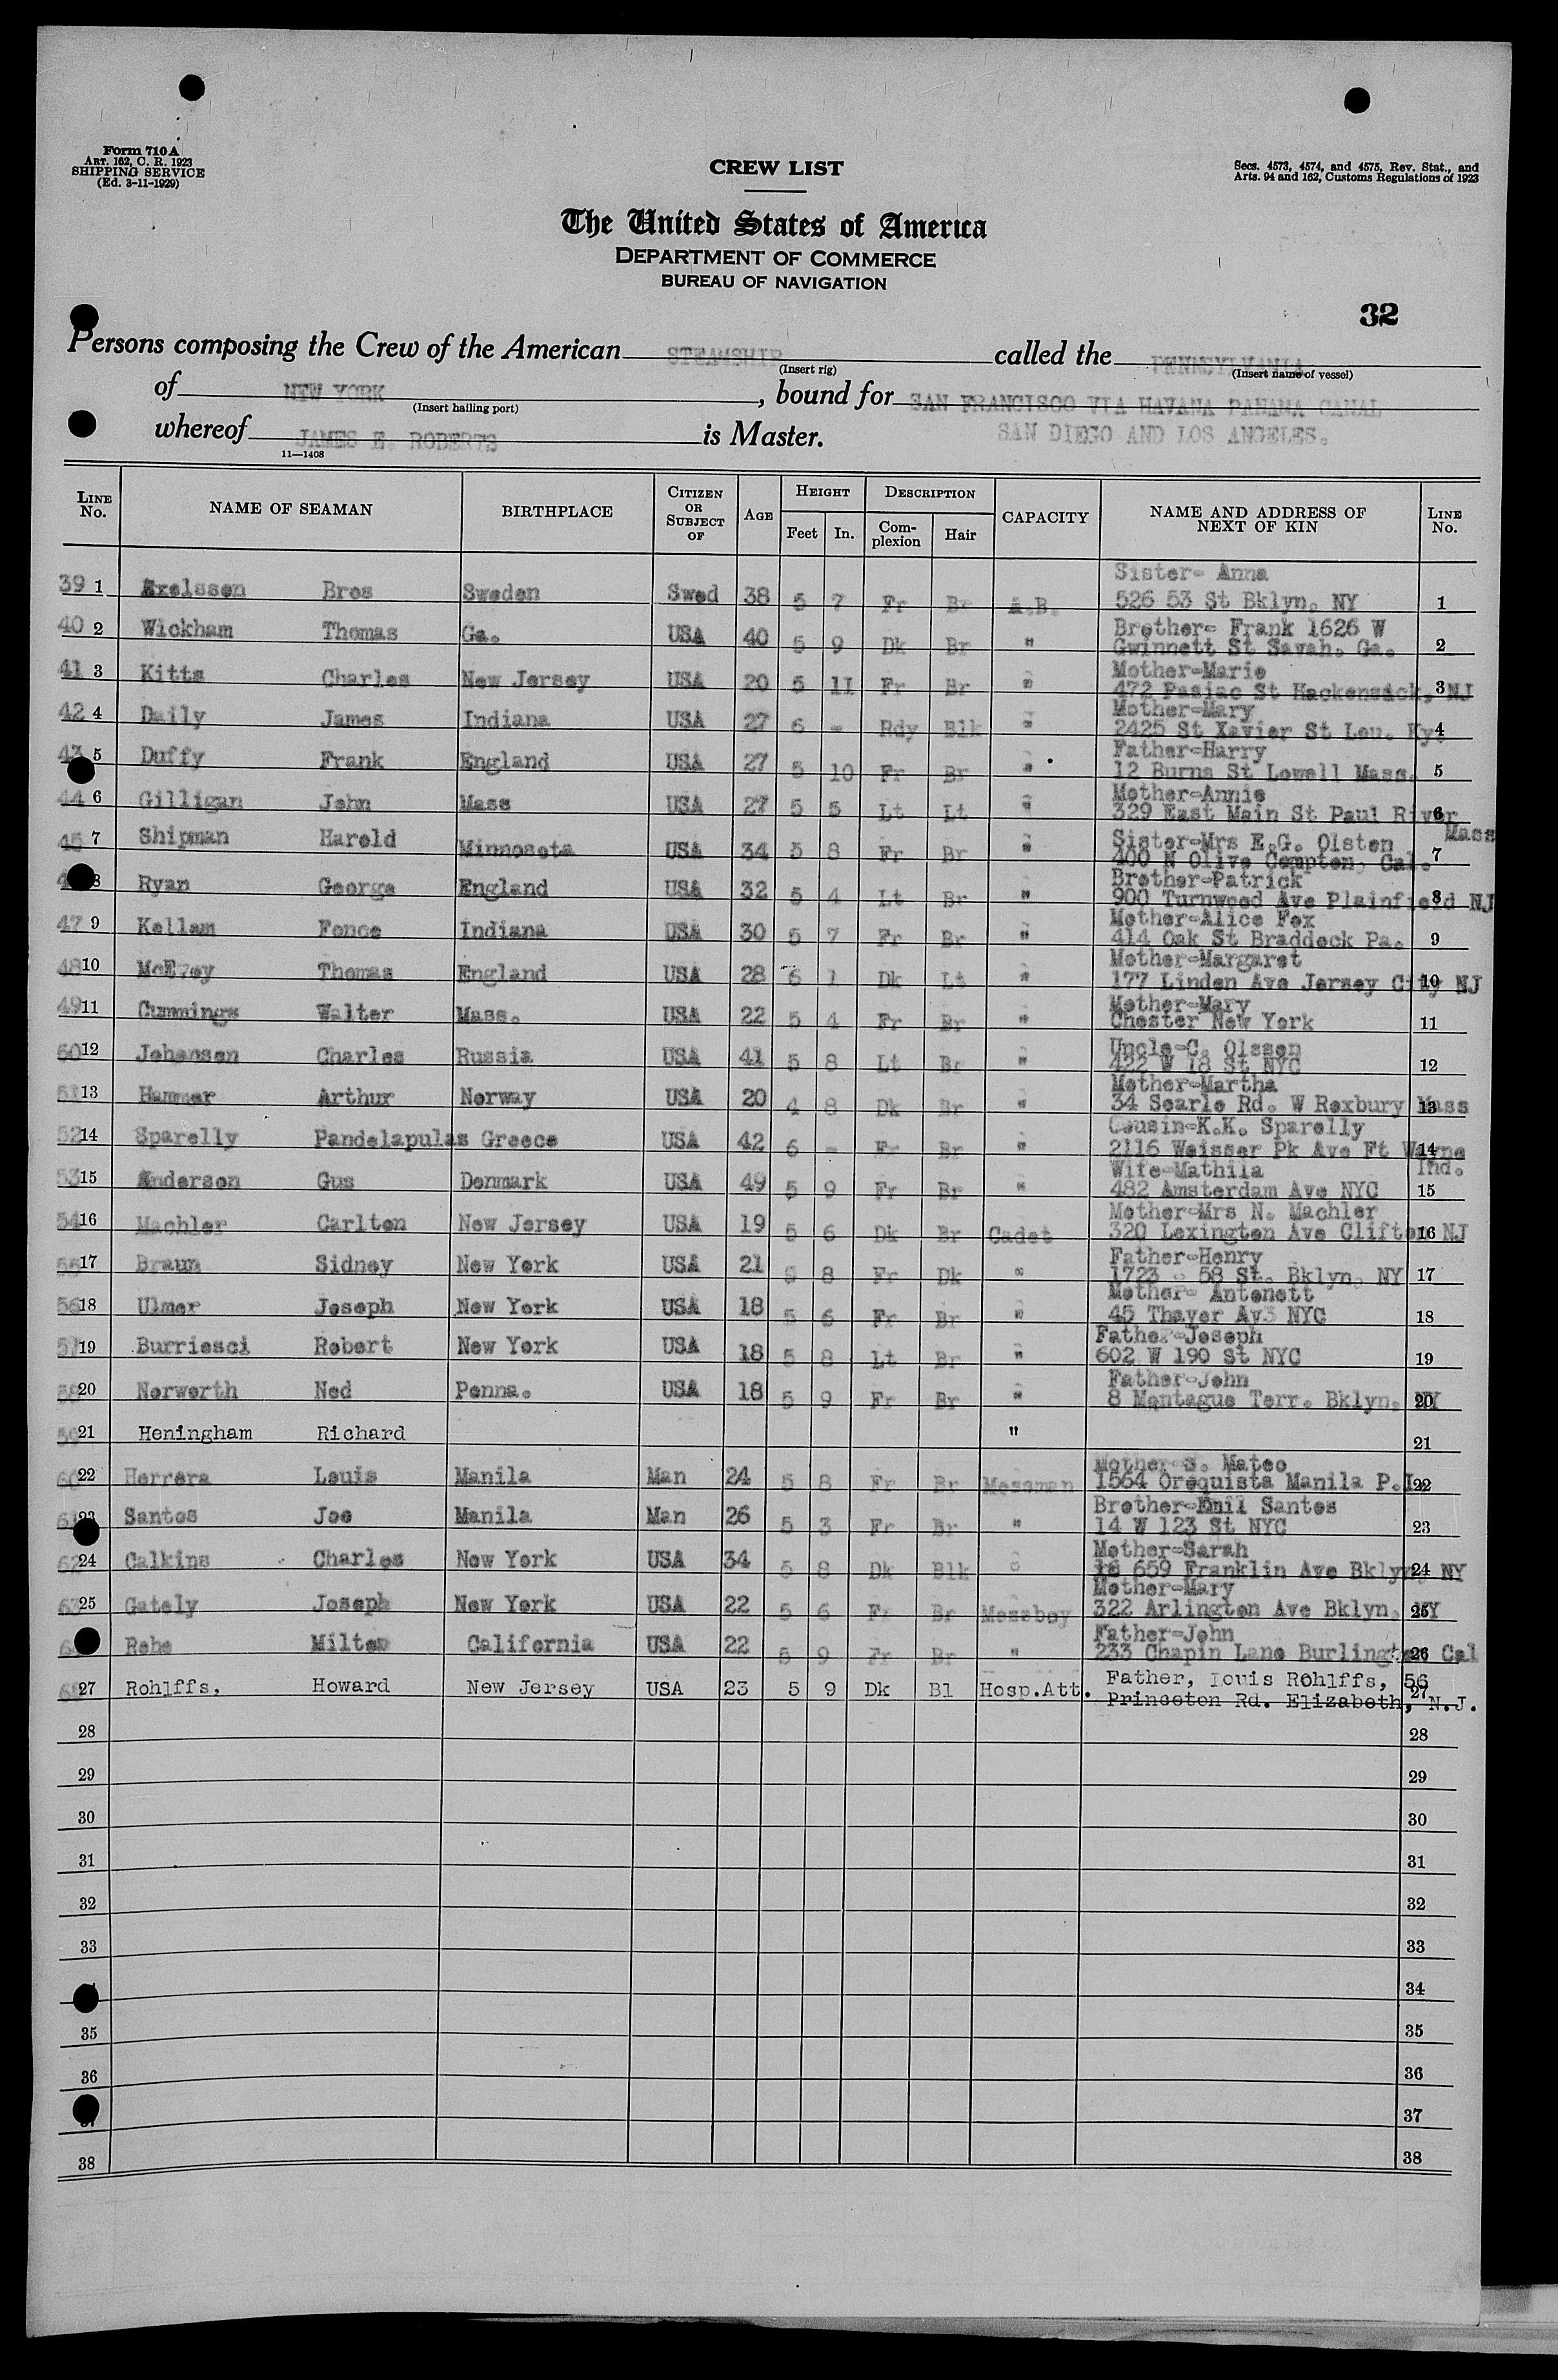 Form 710 A
ART. 162, C. R. 1923
SHIPPING SERVICE
(Ed. 3-11-1929)
CREW LIST
Secs. 4573, 4574, and 4575, Rev. Stat., and
Arts. 94 and 162, Customs Regulations of 1923
The United States of America
DEPARTMENT OF COMMERCE
BUREAU OF NAVIGATION
32
Persons composing the Crew of the American STEAMSHIP called the PENNSYLVANIA
(Insert rig) (Insert name of vessel)
of NEW YORK, bound for SAN FRANCISCO VIA HAVANA PANAMA CANAL
(Insert hailing port)
whereof JAMES E. ROBERTS is Master. SAN DIEGO AND LOS ANGELES.
11—1408
LINE No. NAME OF SEAMAN BIRTHPLACE CITIZEN OR SUBJECT OF AGE HEIGHT Feet In. DESCRIPTION Complexion Hair CAPACITY NAME AND ADDRESS OF NEXT OF KIN LINE No.
Sister- Anna
39 1 Axelssen Bros Sweden Swed 38 5 7 Fr Br A.B. 526 53 St Bklyn. NY 1
Brother- Frank 1626 W
40 2 Wickham Thomas Ga. USA 40 5 9 Dk Br " Gwinnett St Savah. Ga. 2
Mother-Marie
41 3 Kitts Charles New Jersey USA 20 5 11 Fr Br " 472 Pasiac St Hackensack, NJ 3
Mother-Mary
42 4 Daily James Indiana USA 27 6 - Rdy Blk " 2425 St Xavier St Lou. Ky. 4
Father-Harry
43 5 Duffy Frank England USA 27 5 10 Fr Br " 12 Burns St Lowell Mass. 5
Mother-Annie
44 6 Gilligan John Mass USA 27 5 5 Lt Lt " 329 East Main St Paul River Mass 6
Sister-Mrs E.G. Olsten
45 7 Shipman Harold Minnesota USA 34 5 8 Fr Br " 400 N Olive Compton, Cal. 7
Brother-Patrick
8 Ryan George England USA 32 5 4 Lt Br " 900 Turnwood Ave Plainfield NJ 8
Mother-Alice Fox
47 9 Kellam Fonce Indiana USA 30 5 7 Fr Br " 414 Oak St Braddock Pa. 9
Mother-Margaret
48 10 McEvoy Thomas England USA 28 6 1 Dk Lt " 177 Linden Ave Jersey City NJ 10
Mother-Mary
49 11 Cummings Walter Mass. USA 22 5 4 Fr Br " Chester New York 11
Uncle-C. Olssen
50 12 Johansen Charles Russia USA 41 5 8 Lt Br " 422 W 18 St NYC 12
Mother-Martha
51 13 Hammer Arthur Norway USA 20 4 8 Dk Br " 34 Searle Rd. W Roxbury Mass 13
Cousin-K.K. Sparelly
52 14 Sparelly Pandelapulas Greece USA 42 6 - Fr Br " 2116 Weisser Pk Ave Ft Wayne Ind. 14
Wife-Mathila
53 15 Anderson Gus Denmark USA 49 5 9 Fr Br " 482 Amsterdam Ave NYC 15
Mother-Mrs N. Machler
54 16 Machler Carlton New Jersey USA 19 5 6 Dk Br Cadet 320 Lexington Ave Clifton NJ 16
Father-Henry
55 17 Braun Sidney New York USA 21 5 8 Fr Dk " 1723 - 58 St. Bklyn. NY 17
Mother- Antonett
56 18 Ulmer Joseph New York USA 18 5 6 Fr Br " 45 Thayer Av3 NYC 18
Father-Joseph
57 19 Burriesci Robert New York USA 18 5 8 Lt Br " 602 W 190 St NYC 19
Father-John
58 20 Norworth Ned Penna. USA 18 5 9 Fr Br " 8 Montague Terr. Bklyn. NY 20
59 21 Heningham Richard " 21
Mother-S. Mateo
60 22 Herrera Louis Manila Man 24 5 8 Fr Br Messman 1564 Oroquista Manila P.I. 22
Brother-Emil Santos
61 23 Santos Joe Manila Man 26 5 3 Fr Br " 14 W 123 St NYC 23
Mother-Sarah
62 24 Calkins Charles New York USA 34 5 8 Dk Blk " 659 Franklin Ave Bklyn, NY 24
Mother-Mary
63 25 Gately Joseph New York USA 22 5 6 Fr Br Messboy 322 Arlington Ave Bklyn. NY 25
Father-John
Rehe Milton California USA 22 5 9 Fr Br " 233 Chapin Lane Burlington Cal 26
Father, Louis Rohlffs, 56
27 Rohlffs, Howard New Jersey USA 23 5 9 Dk Bl Hosp.Att. Princeton Rd. Elizabeth, N.J. 27
28 28
29 29
30 30
31 31
32 32
33 33
34
35 35
36 36
37
38 38